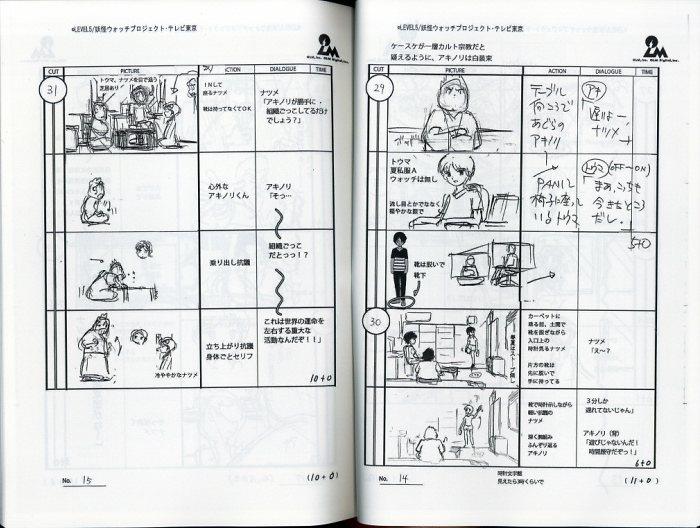 ©LEVEL5/妖怪ウォッチプロジェクト・テレビ東京
OLM, Inc. OLM Digital, Inc.
ケースケが一層カルト宗教だと
疑えるように、アキノリは白装束
CUT PICTURE ACTION DIALOGUE TIME
29
テーブル
向こうで
あぐらの
アキノリ
アキ
「遅いよー
ナツメ
トウマ
夏私服A
ウォッチは無し
流し目とかでなく
穏やかな眼で
PANして
椅子に座って
いるトウマ
トウマ (OFF〜ON)
「まぁ、こっちも
今きたところ
だし。
5+0
靴は脱いで
靴下
30
春夏はストーブ無し
カーペットに
乗る前、土間で
靴を脱ぎながら
入口上の
時計見るナツメ
片方の靴は
先に脱いで
手に持ってる
ナツメ
「え〜?
靴で時計示しながら
軽い抗議の
ナツメ
深く腕組み
ふんぞり返る
アキノリ
3分しか
遅れてないじゃん」
アキノリ(背)
「遊びじゃないんだ!
時間厳守だぞっ!」
6+0
No. 14
時計文字盤
見えたら3時くらいで
(11+0)
©LEVEL5/妖怪ウォッチプロジェクト・テレビ東京
OLM, Inc. OLM Digital, Inc.
CUT PICTURE ACTION DIALOGUE TIME
31
トウマ、ナツメを目で追う
芝居あり
INして
座るナツメ
靴は持ってなくてOK
ナツメ
「アキノリが勝手に・
組織ごっこしてるだけ
でしょう?」
心外な
アキノリくん
アキノリ
「そっ…
乗り出し抗議
組織ごっこ
だとっっ!?
冷ややかなナツメ
立ち上がり抗議
身体ごとセリフ
これは世界の運命を
左右する重大な
活動なんだぞ!!」
10+0
No. 15
(10+0)